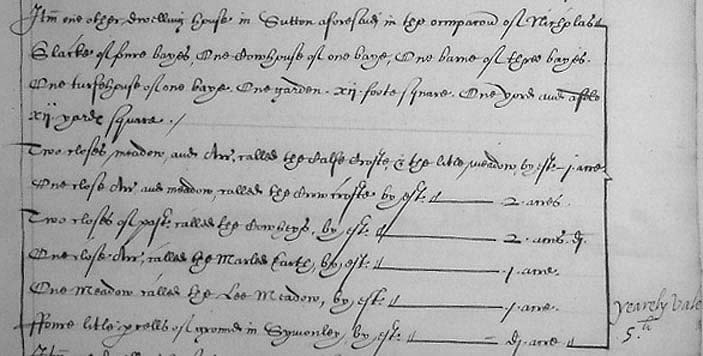 Itm one other dwelling house in Sutton aforesaid in the occupacon of Nicholas
Slacke of foure bayes, One Cowhouse of one baye, One barne of three bayes.
One turfehouse of one baye. One garden. xij. foote square. One yord and a
xij yards square. /
Two closes, meadow, and Arr, called the Calfe Crofte, & the litle meadow, by est. 1. acre
One close Arr and meadow, called the Crowcrofte by est. 2. acres.
Two closes of past. called the Cowheys, by est. 2. acres dj.
One close Arr, called the Marled Earth, by est. 1. acre.
One Meadow called the Lee Meadow, by est. 1. acre.
ffoure litle p'cells of ground in Symonley, by est. dj. acre
Yearely Vale
5.li
Itm